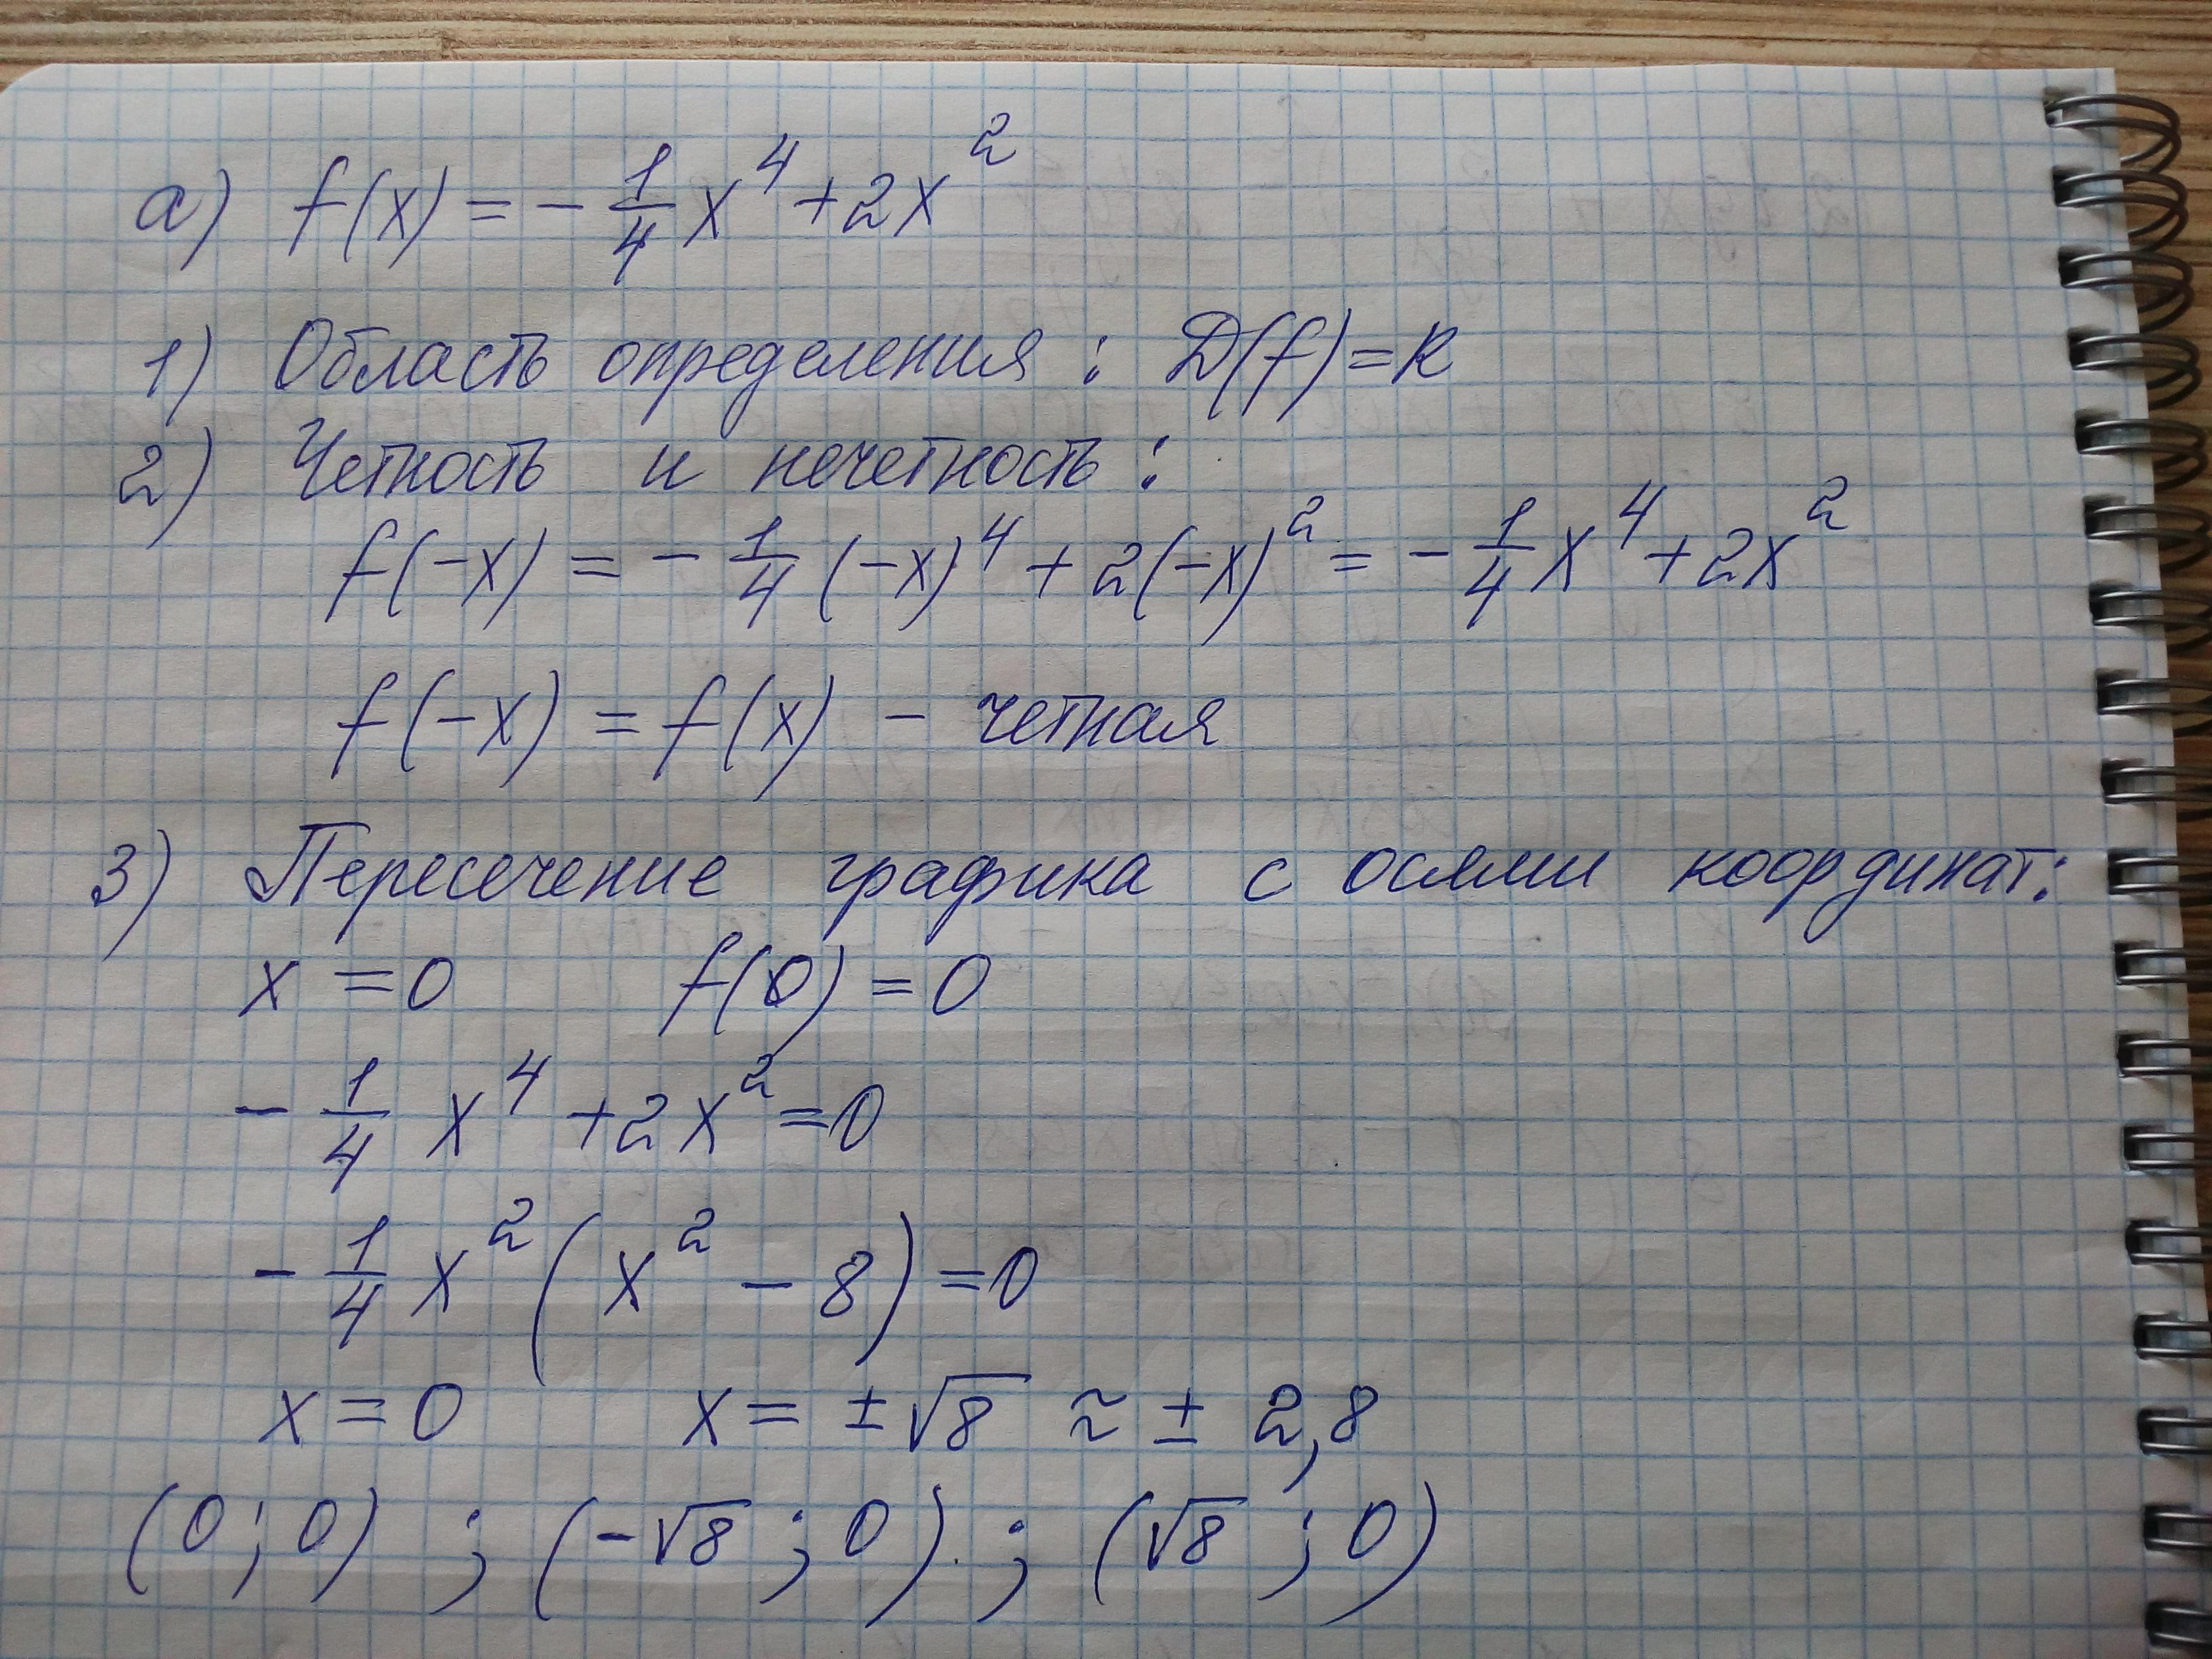 а) f(x) = - 1/4 x⁴ + 2x²
1) Область определения : D(f) = R
2) Четность и нечетность :
f(-x) = - 1/4 (-x)⁴ + 2(-x)² = - 1/4 x⁴ + 2x²
f(-x) = f(x) - четная
3) Пересечение графика с осями координат:
x = 0 f(0) = 0
- 1/4 x⁴ + 2x² = 0
- 1/4 x² (x² - 8) = 0
x = 0 x = ± √8 ≈ ± 2,8
(0; 0) ; (-√8 ; 0) ; (√8 ; 0)